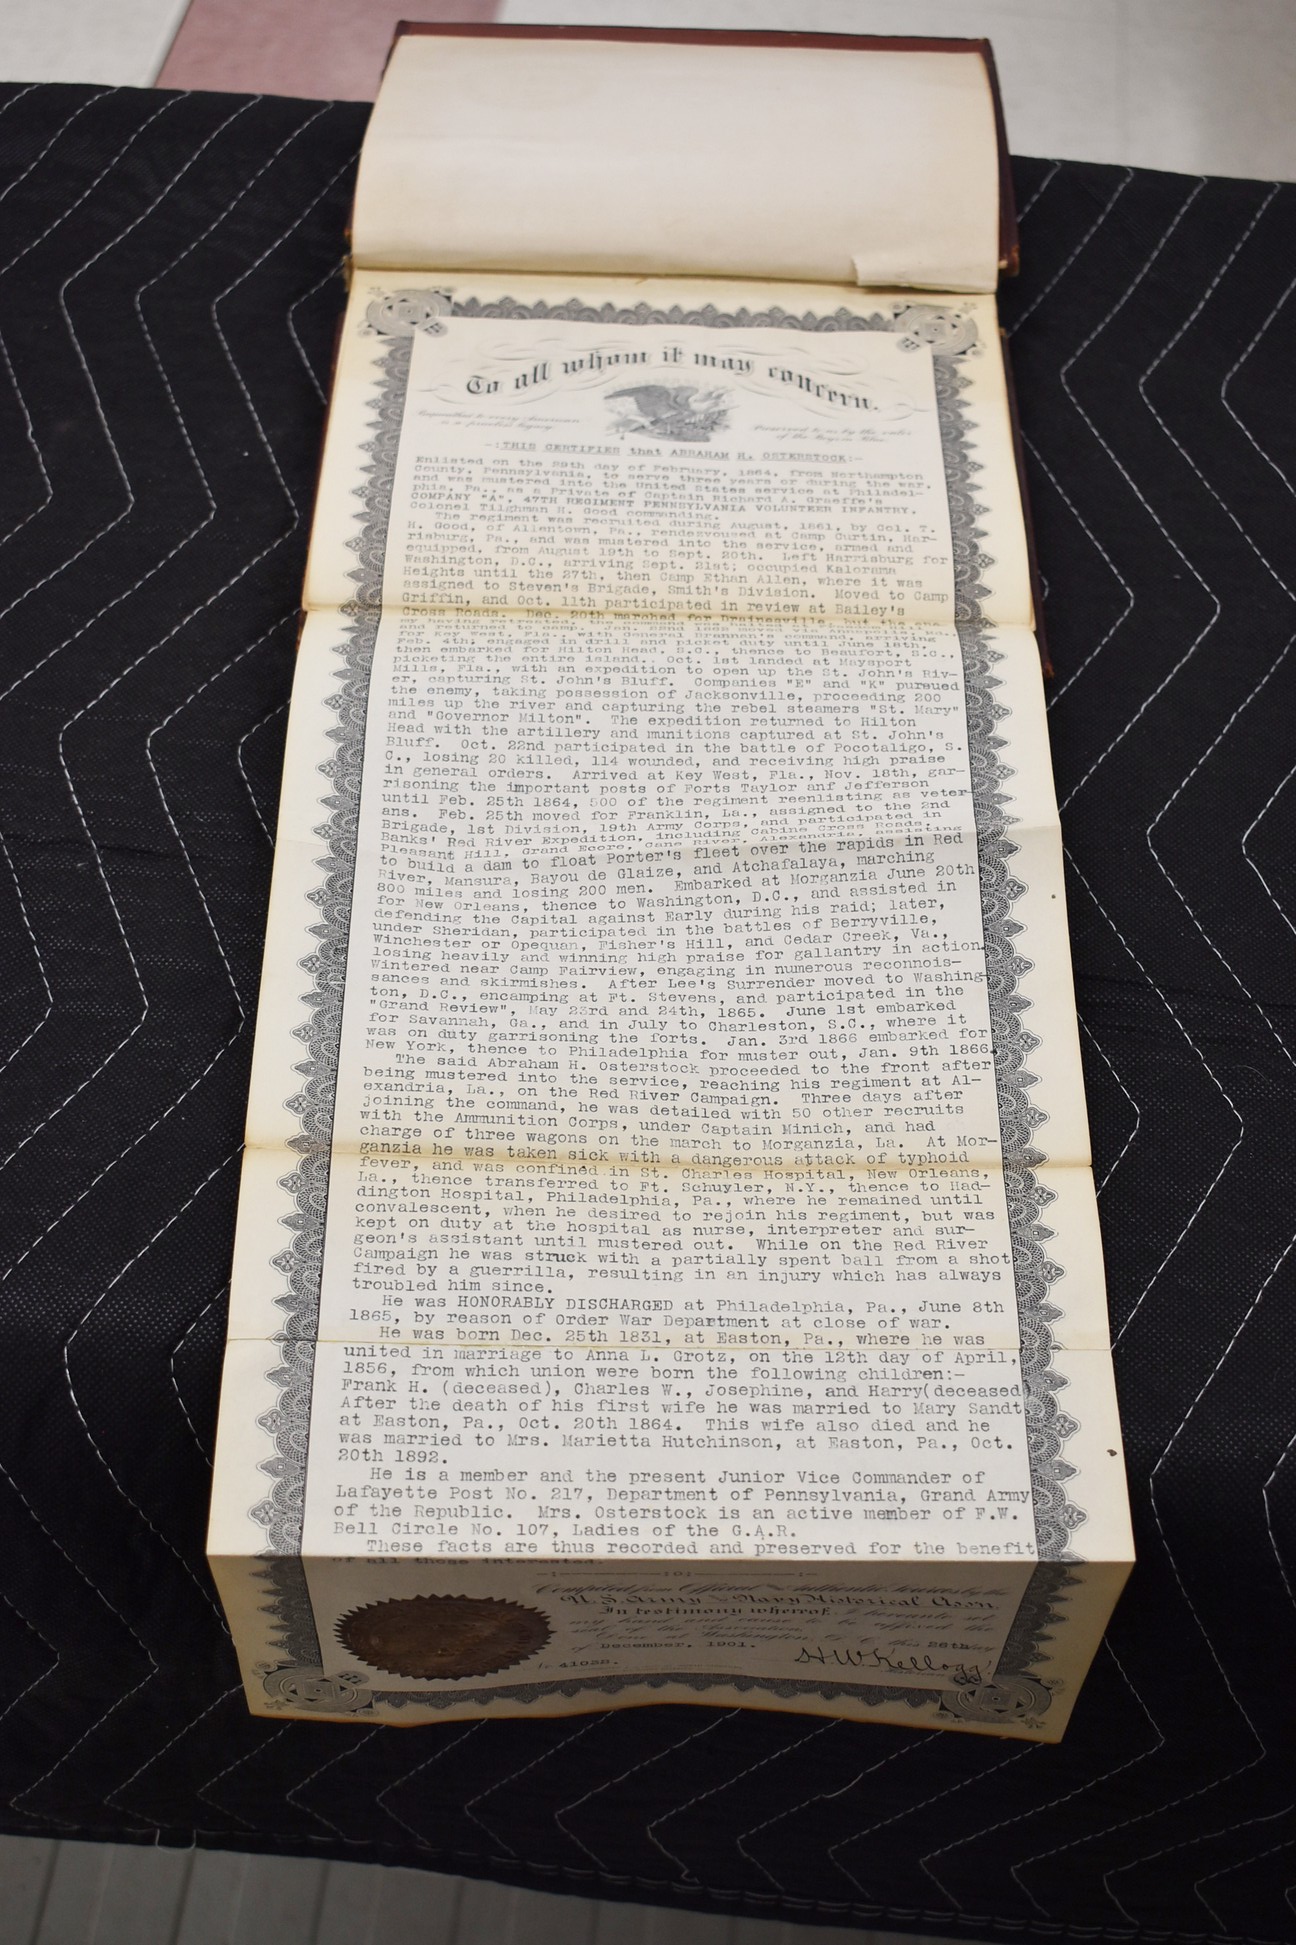 To all whom it may concern.
Bequeathed to every American
as a priceless legacy
Preserved to us by the valor
of the Boys in Blue
-:THIS CERTIFIES that ABRAHAM H. OSTERSTOCK:-
Enlisted on the 29th day of February, 1864, from Northampton
County, Pennsylvania, to serve three years or during the war,
and was mustered into the United States service at Philadel-
phia, Pa., as a Private of Captain Richard A. Graeffe's
COMPANY "A", 47TH REGIMENT PENNSYLVANIA VOLUNTEER INFANTRY,
Colonel Tilghman H. Good commanding.
The regiment was recruited during August, 1861, by Col. T.
H. Good, of Allentown, Pa., rendezvoused at Camp Curtin, Har-
risburg, Pa., and was mustered into the service, armed and
equipped, from August 19th to Sept. 20th. Left Harrisburg for
Washington, D.C., arriving Sept. 21st; occupied Kalorama
Heights until the 27th, then Camp Ethan Allen, where it was
assigned to Steven's Brigade, Smith's Division. Moved to Camp
Griffin, and Oct. 11th participated in review at Bailey's
Cross Roads. Dec. 20th marched for Drainesville, but the ene-
my having retreated, the command
and returned to camp. via Annapolis, Md.,
for Key West, Fla., with General Brannan's command, arriving
Feb. 4th; engaged in drill and picket duty until June 18th,
then embarked for Hilton Head, S.C., thence to Beaufort, S.C.,
picketing the entire island. Oct. 1st landed at Maysport
Mills, Fla., with an expedition to open up the St. John's Riv-
er, capturing St. John's Bluff. Companies "E" and "K" pursued
the enemy, taking possession of Jacksonville, proceeding 200
miles up the river and capturing the rebel steamers "St. Mary"
and "Governor Milton". The expedition returned to Hilton
Head with the artillery and munitions captured at St. John's
Bluff. Oct. 22nd participated in the battle of Pocotaligo, S.
C., losing 20 killed, 114 wounded, and receiving high praise
in general orders. Arrived at Key West, Fla., Nov. 18th, gar-
risoning the important posts of Forts Taylor anf Jefferson
until Feb. 25th 1864, 500 of the regiment reenlisting as veter-
ans. Feb. 25th moved for Franklin, La., assigned to the 2nd
Brigade, 1st Division, 19th Army Corps, and participated in
Banks' Red River Expedition, including Cabine Cross Roads,
Pleasant Hill, Grand Ecore, Cane River, Alexandria, assisting
to build a dam to float Porter's fleet over the rapids in Red
River, Mansura, Bayou de Glaize, and Atchafalaya, marching
800 miles and losing 200 men. Embarked at Morganzia June 20th
for New Orleans, thence to Washington, D.C., and assisted in
defending the Capital against Early during his raid; later,
under Sheridan, participated in the battles of Berryville,
Winchester or Opequan, Fisher's Hill, and Cedar Creek, Va.,
losing heavily and winning high praise for gallantry in action.
Wintered near Camp Fairview, engaging in numerous reconnois-
sances and skirmishes. After Lee's Surrender moved to Washing-
ton, D.C., encamping at Ft. Stevens, and participated in the
"Grand Review", May 23rd and 24th, 1865. June 1st embarked
for Savannah, Ga., and in July to Charleston, S.C., where it
was on duty garrisoning the forts. Jan. 3rd 1866 embarked for
New York, thence to Philadelphia for muster out, Jan. 9th 1866.
The said Abraham H. Osterstock proceeded to the front after
being mustered into the service, reaching his regiment at Al-
exandria, La., on the Red River Campaign. Three days after
joining the command, he was detailed with 50 other recruits
with the Ammunition Corps, under Captain Minich, and had
charge of three wagons on the march to Morganzia, La. At Mor-
ganzia he was taken sick with a dangerous attack of typhoid
fever, and was confined in St. Charles Hospital, New Orleans,
La., thence transferred to Ft. Schuyler, N.Y., thence to Had-
dington Hospital, Philadelphia, Pa., where he remained until
convalescent, when he desired to rejoin his regiment, but was
kept on duty at the hospital as nurse, interpreter and sur-
geon's assistant until mustered out. While on the Red River
Campaign he was struck with a partially spent ball from a shot
fired by a guerrilla, resulting in an injury which has always
troubled him since.
He was HONORABLY DISCHARGED at Philadelphia, Pa., June 8th
1865, by reason of Order War Department at close of war.
He was born Dec. 25th 1831, at Easton, Pa., where he was
united in marriage to Anna L. Grotz, on the 12th day of April,
1856, from which union were born the following children:-
Frank H. (deceased), Charles W., Josephine, and Harry(deceased)
After the death of his first wife he was married to Mary Sandt
at Easton, Pa., Oct. 20th 1864. This wife also died and he
was married to Mrs. Marietta Hutchinson, at Easton, Pa., Oct.
20th 1892.
He is a member and the present Junior Vice Commander of
Lafayette Post No. 217, Department of Pennsylvania, Grand Army
of the Republic. Mrs. Osterstock is an active member of F.W.
Bell Circle No. 107, Ladies of the G.A.R.
These facts are thus recorded and preserved for the benefit
of all those interested.
Compiled from Official and Authentic Sources by the
U.S. Army and Navy Historical Assn.
In testimony whereof, I hereunto set
my hand and cause to be affixed the
seal of the Association.
Done at Washington, D.C. this 26th day
of December, 1901.
H.W. Kellogg